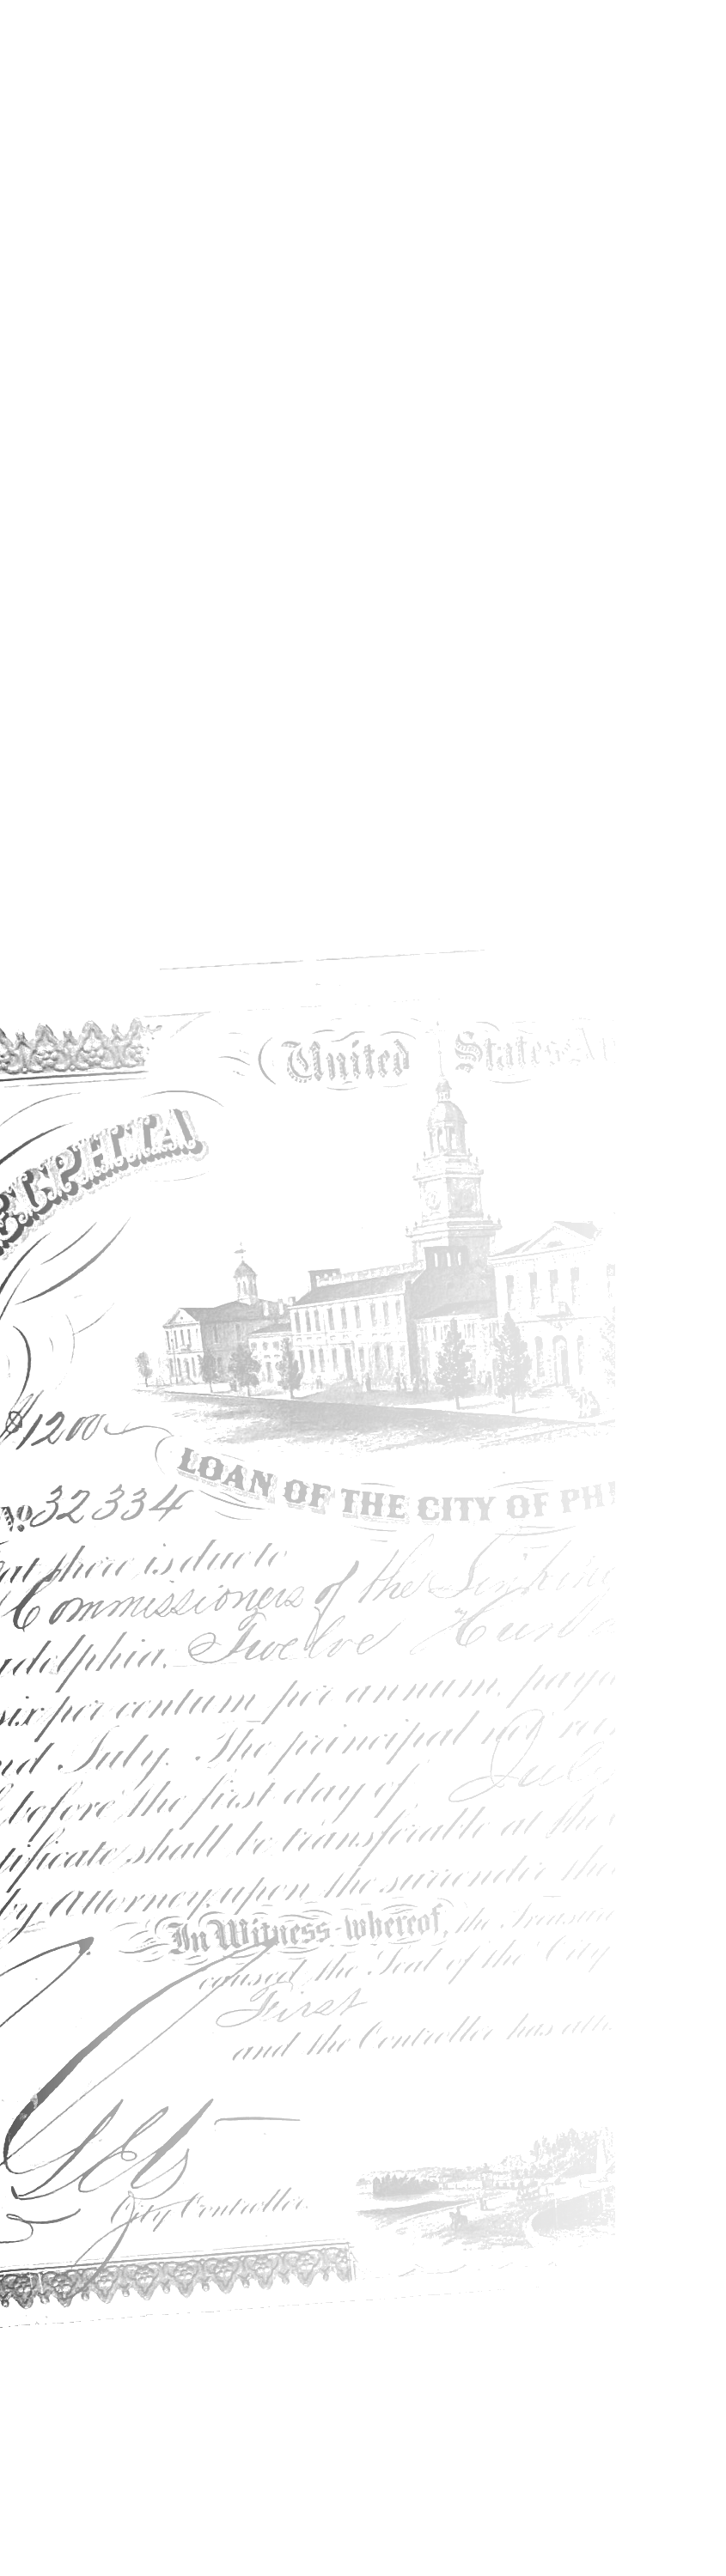 United States
ELPHIA
$1200
LOAN OF THE CITY OF PH
No 32334
at there is due to
Commissioners of the Sinking
adelphia. Twelve Hund
six per centum per annum, paya
nd July. The principal not
before the first day of July
tificate shall be transferable at the
by Attorney, upon the surrender
In Witness whereof, the Treasure
caused the Seal of the City
First
and the Controller has atte
City Controller